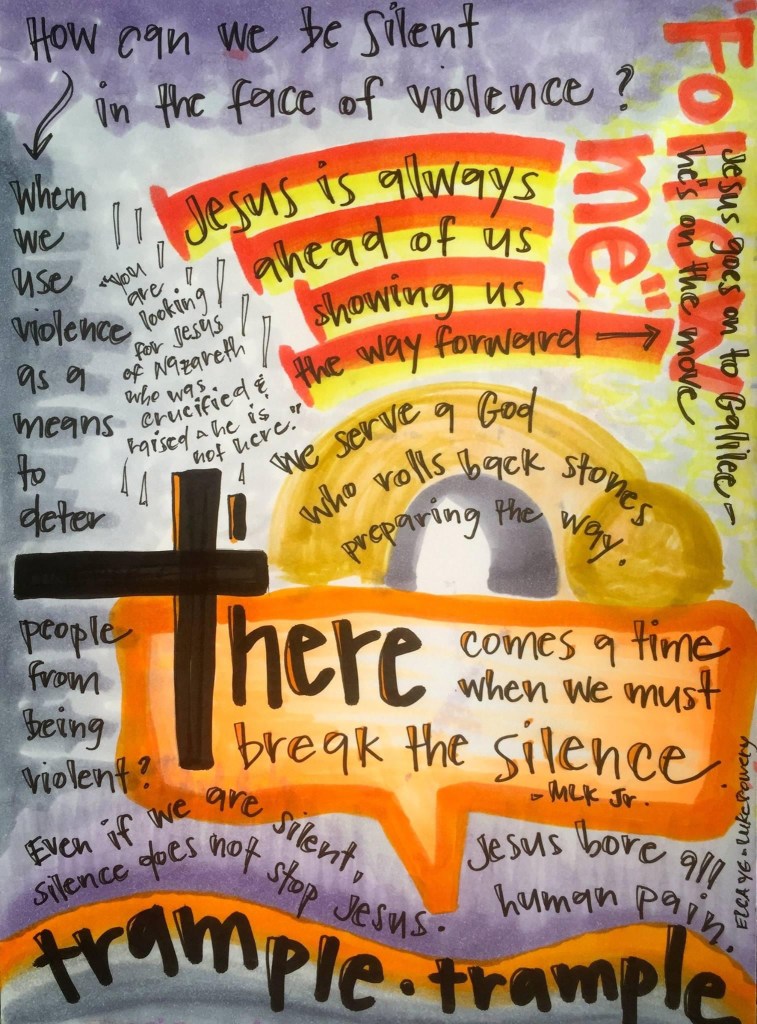 How can we be silent
in the face of violence?
When
we
use
violence
as a
means
to
deter
people
from
being
violent?
"you
are
looking
for Jesus
of Nazareth
who was
crucified &
raised - he is
not here."
Jesus is always
ahead of us
showing us
the way forward →
"Follow
me"
Jesus goes on to Galilee -
he's on the move
We serve a God
who rolls back stones
preparing the way.
There comes a time
when we must
break the silence.
- MLK Jr.
Even if we are silent,
silence does not stop Jesus.
Jesus bore all
human pain.
trample · trample
ELCA YG - Luke Powery